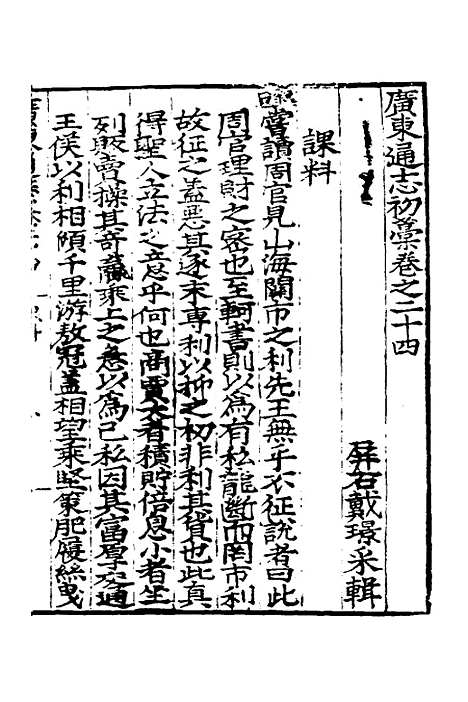 廣東通志初藁卷之二十四
屏石戴璟采輯
課料
嘗讀周官見山海關市之利先王無乎不征說者曰此
周官理財之密也至軻書則以為有私龍斷而罔市利
故征之蓋惡其逐末專利以抑之初非利其貨也此真
得聖人立法之意乎何也商賈大者積貯倍息小者坐
列敗賣操其奇贏乘上之急以為己私因其富厚交通
王侯以利相傾千里游敖冠蓋相望乘堅策肥履絲曳